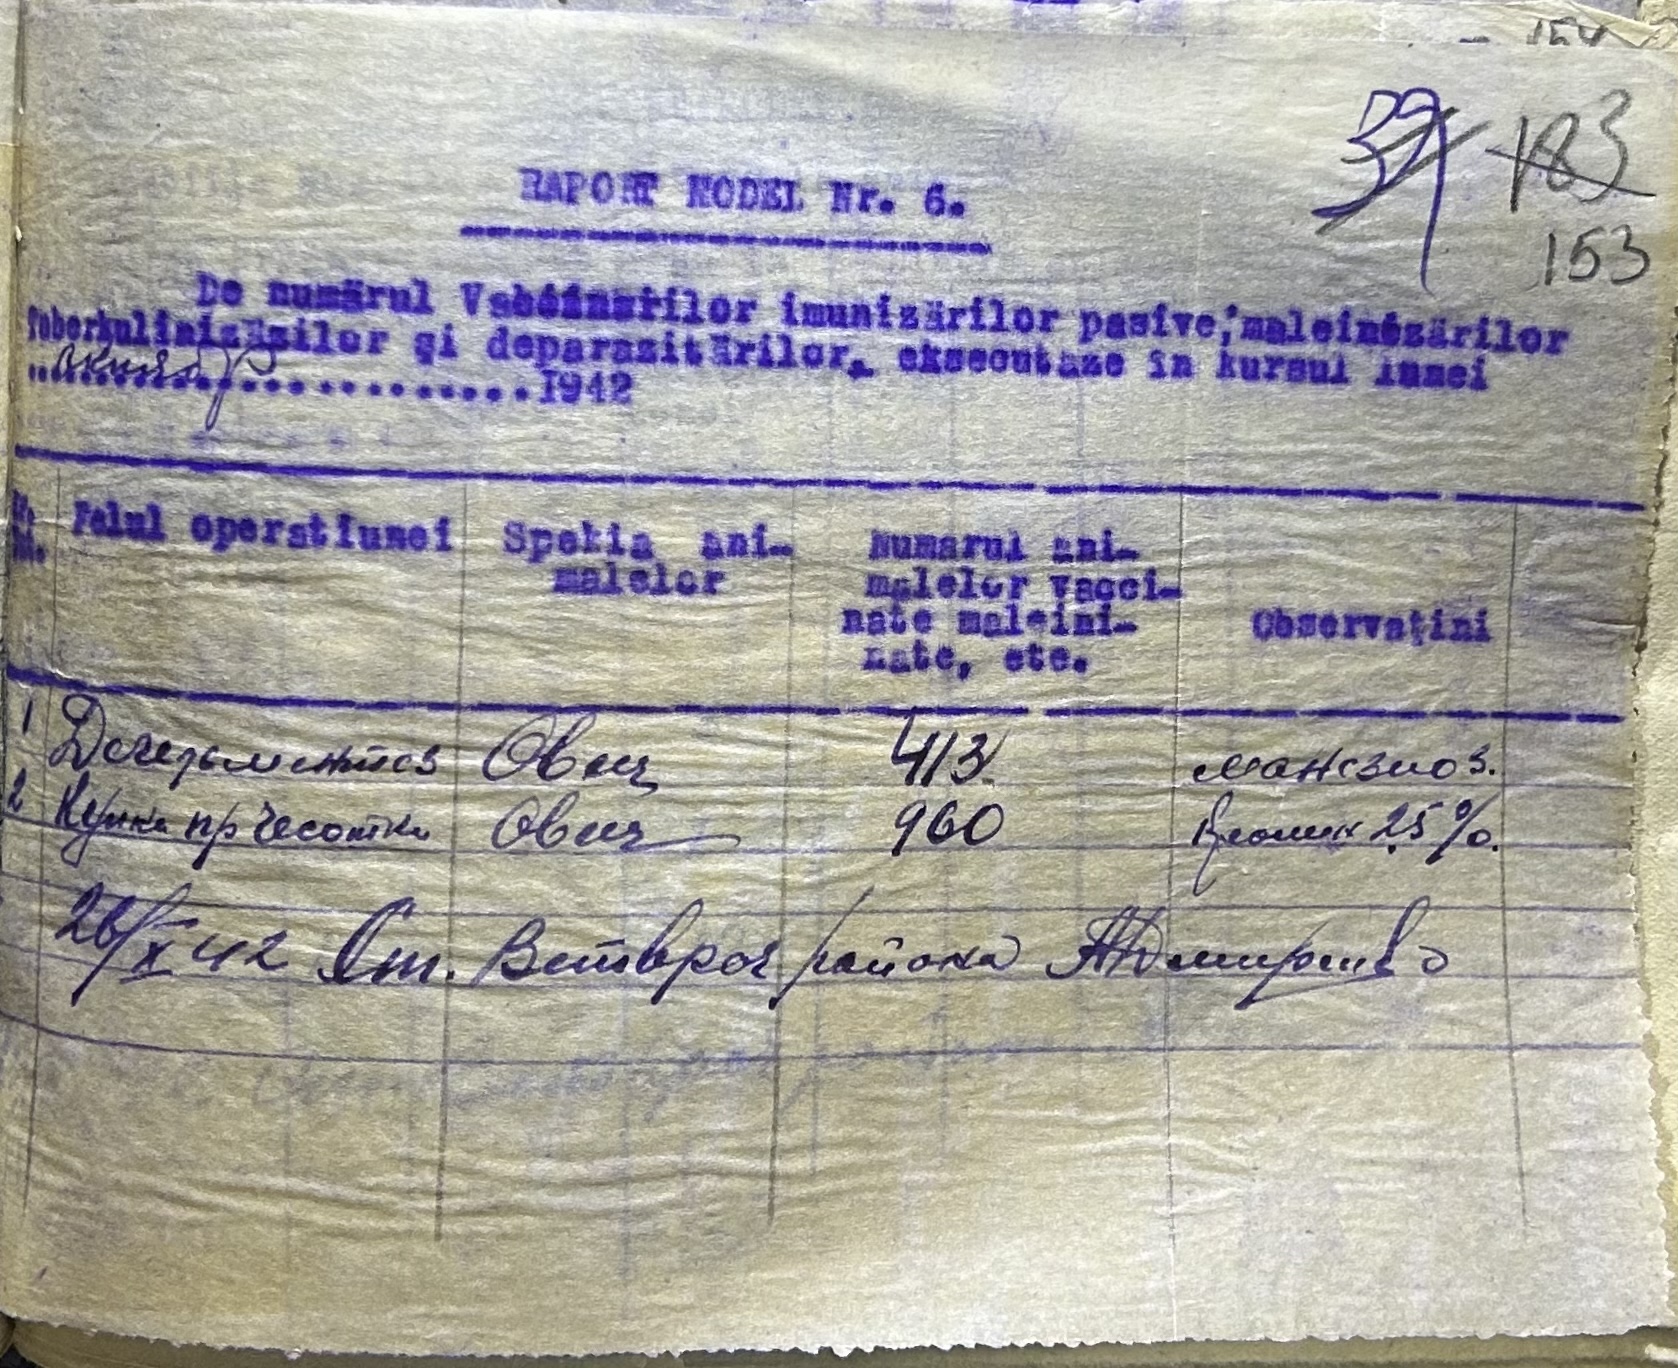 154
39 183
153
RAPORT MODEL Nr. 6.
De numărul Vabéinarilor imunizărilor pasive, maleinézărilor
Tuberkulinizăzilor şi deparazitărilor, eksecutaze în kursul lunei
............................1942
Nr.
Felul operatiunei
Spekia ani-
malelor
Numarul ani-
malelor vacci-
nate maleini-
nate, ete.
Observaţini
1 Овец 413
2 Купка пр чесотки Овец 960 Креолин 2,5%.
26/X 42 Ст. Ветврач района